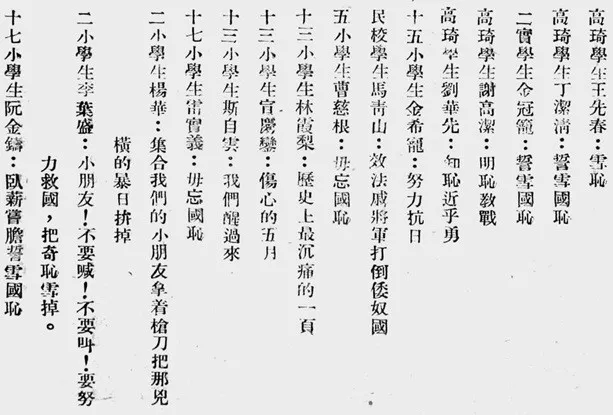 高琦學生王先春：雪恥
高琦學生丁潔淸：誓雪國恥
二實學生金冠寵：誓雪國恥
高琦學生謝高潔：明恥敎戰
高琦學生劉華先：知恥近乎勇
十五小學生金希寵：努力抗日
民校學生馬靑山：效法戚將軍打倒倭奴國
五小學生曹慈根：毋忘國恥
十三小學生林霞梨：歷史上最沉痛的一頁
十三小學生宣慶鑾：傷心的五月
十三小學生斯自雲：我們醒過來
十七小學生雷寶義：毋忘國恥
二小學生楊華：集合我們的小朋友拿着槍刀把那兇
橫的暴日拚掉
二小學生李葉盛：小朋友！不要喊！不要叫！要努
力救國，把奇恥雪掉。
十七小學生阮金鑄：臥薪嘗膽誓雪國恥